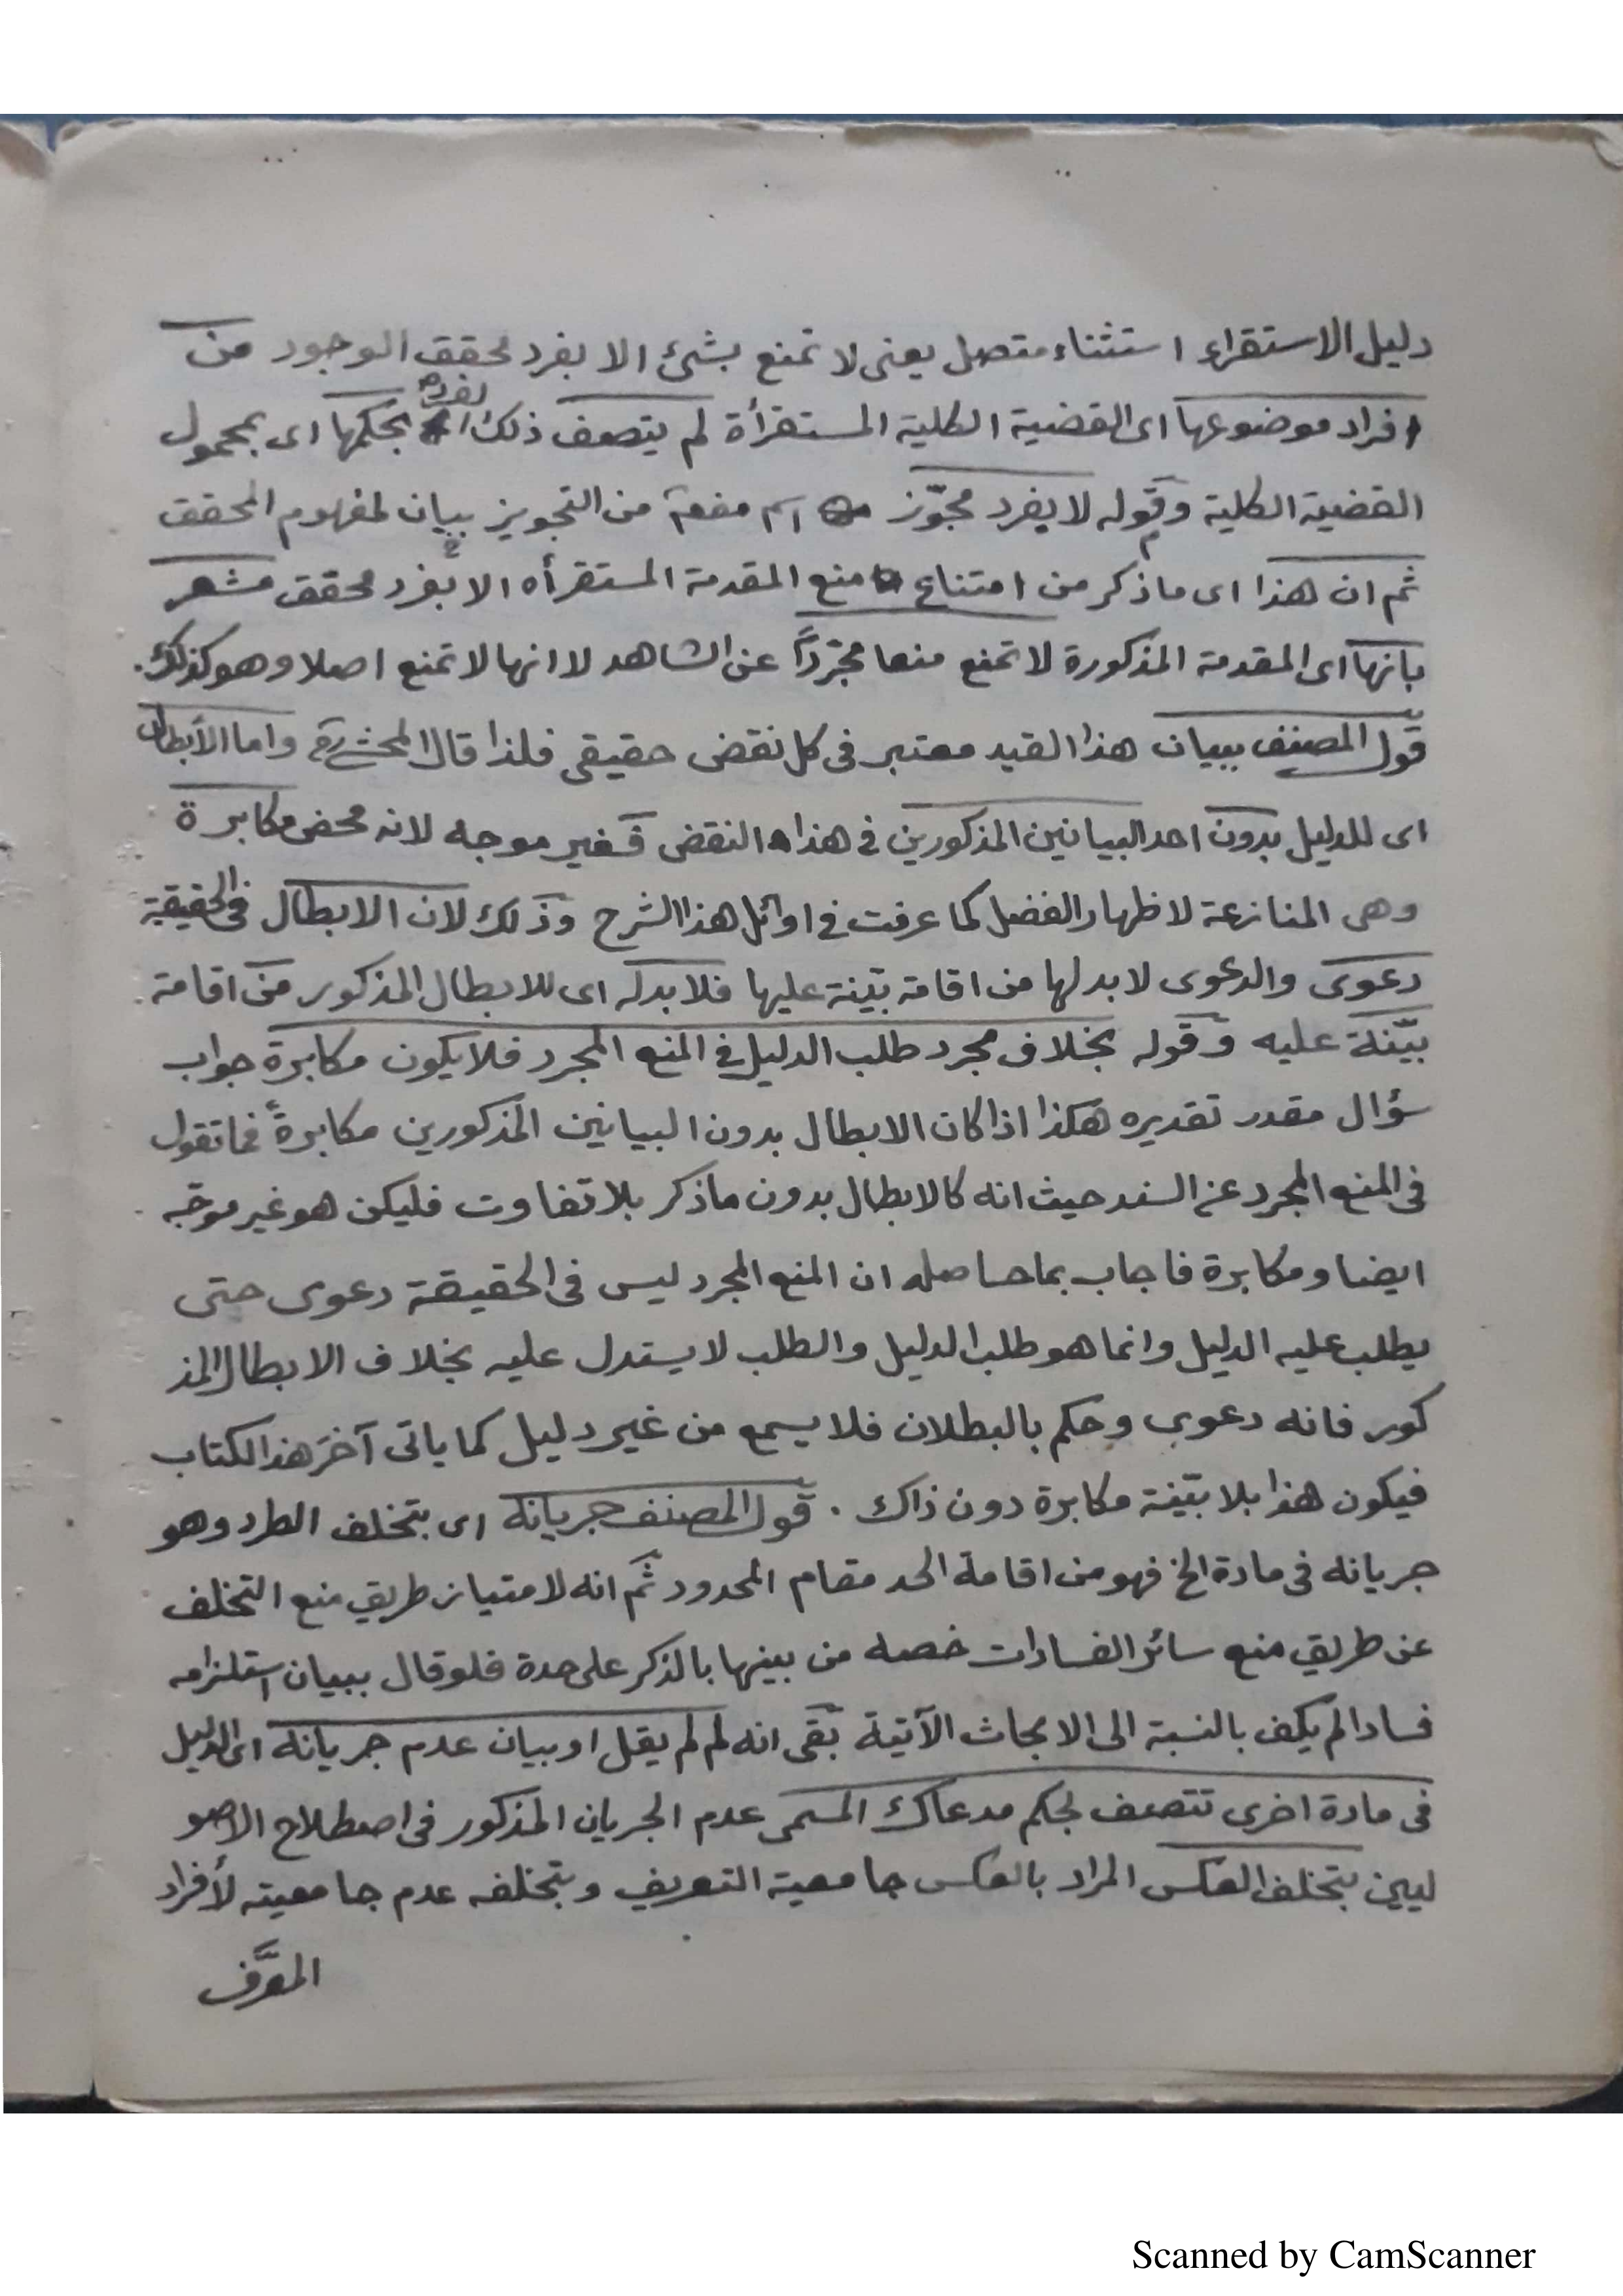 دليل الاستقراء استثناء متصل يعنى لا تمنع بشئ الا بفرد محقق الوجود من
افراد موضوعها اى القضية الكلية المستقرأة لم يتصف ذلك الفرد بحكمها اى بمحمول
القضية الكلية وقوله لا بفرد مجوّز اسم مفعم من التجويز بيان لمفهوم المحقق
ثم ان هذا اى ما ذكر من امتناع منع المقدمة المستقرأه الا بفرد محقق مشعر
بانها اى المقدمة المذكورة لا تمنع منعا مجرّدًا عن الشاهد لا انها لا تمنع اصلا وهو كذلك.
قول المصنف ببيان هذا القيد معتبر فى كل نقض حقيقى فلذا قال المحشى واما الأبطال
اى للدليل بدون احد البيانين المذكورين فى هذا النقض فغير موجه لانه محض مكابرة
وهى المنازعة لاظهار الفضل كما عرفت فى اوائل هذا الشرح وذلك لان الابطال فى الحقيقة
دعوى والدعوى لا بد لها من اقامة بيّنة عليها فلا بد له اى للابطال المذكور من اقامة
بيّنة عليه وقوله بخلاف مجرد طلب الدليل فى المنع المجرد فلا يكون مكابرة جواب
سؤال مقدر تقديره هكذا اذا كان الابطال بدون البيانين المذكورين مكابرةً فما تقول
فى المنع المجرد عن السند حيث انه كالابطال بدون ما ذكر بلا تفاوت فليكن هو غير موجّه
ايضا ومكابرة فاجاب بما حاصله ان المنع المجرد ليس فى الحقيقة دعوى حتى
يطلب عليه الدليل وانما هو طلب الدليل والطلب لا يستدل عليه بخلاف الابطال المذ
كور فانه دعوى وحكم بالبطلان فلا يسمع من غير دليل كما ياتى آخر هذا الكتاب
فيكون هذا بلا بيّنة مكابرة دون ذاك . قول المصنف جريانه اى بتخلف الطرد وهو
جريانه فى مادة الخ فهو من اقامة الحد مقام المحدود ثم انه لامتياز طريق منع التخلف
عن طريق منع سائر الفسادات خصه من بينها بالذكر على حدة فلو قال ببيان استلزامه
فسادا لم يكف بالنسبة الى الابحاث الآتية بقى انه لم لم يقل او بيان عدم جريانه اى الدليل
فى مادة اخرى تتصف لحكم مدعاك المسمى عدم الجريان المذكور فى اصطلاح الاصو
ليين بتخلف العكس المراد بالعكس جامعية التعريف وبتخلفه عدم جامعيته لأفراد
المعرَّف
Scanned by CamScanner